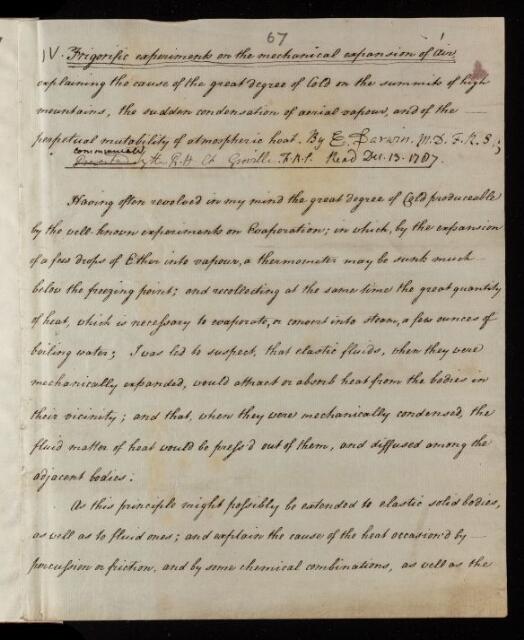 67
IV. Frigorific experiments on the mechanical expansion of Air
explaining the cause of the great degree of Cold on the summits of high
mountains, the sudden condensation of aerial vapour, and of the
perpetual mutability of atmospheric heat. By E. Darwin. M.D. F.R.S.;
communicated
by the R.H. Ch. Greville. F.R.S. Read Dec. 13. 1787.
Having often revolved in my mind the great degree of Cold produceable
by the well-known experiments on Evaporation; in which, by the expansion
of a few drops of Ether into vapour, a thermometer may be sunk much
below the freezing point; and recollecting at the same time the great quantity
of heat, which is necessary to evaporate, or convert into steam, a few ounces of
boiling water; I was led to suspect, that elastic fluids, when they were
mechanically expanded, would attract or absorb heat from the bodies in
their vicinity; and that, when they were mechanically condensed, the
fluid matter of heat would be press'd out of them, and diffused among the
adjacent bodies.
As this principle might possibly be extended to elastic solid bodies,
as well as to fluid ones; and explain the cause of the heat occasion'd by
percussion or friction, and by some chemical combinations, as well as the